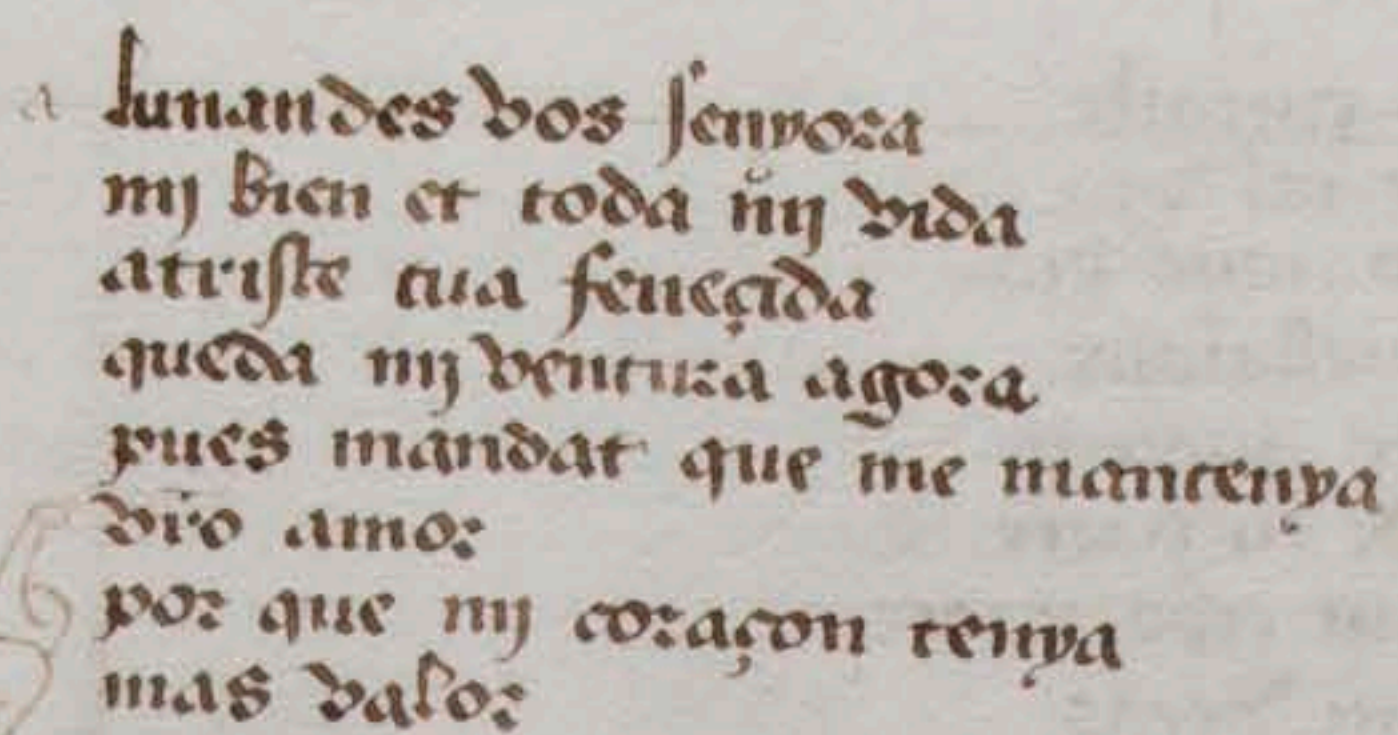 a lunandes vos senyora
mj bien et toda mj vida
atriste feneçida
queda mj ventura agora
pues mandat que me mantenya
vr̃o amor
por que mj coraçon tenya
mas valor